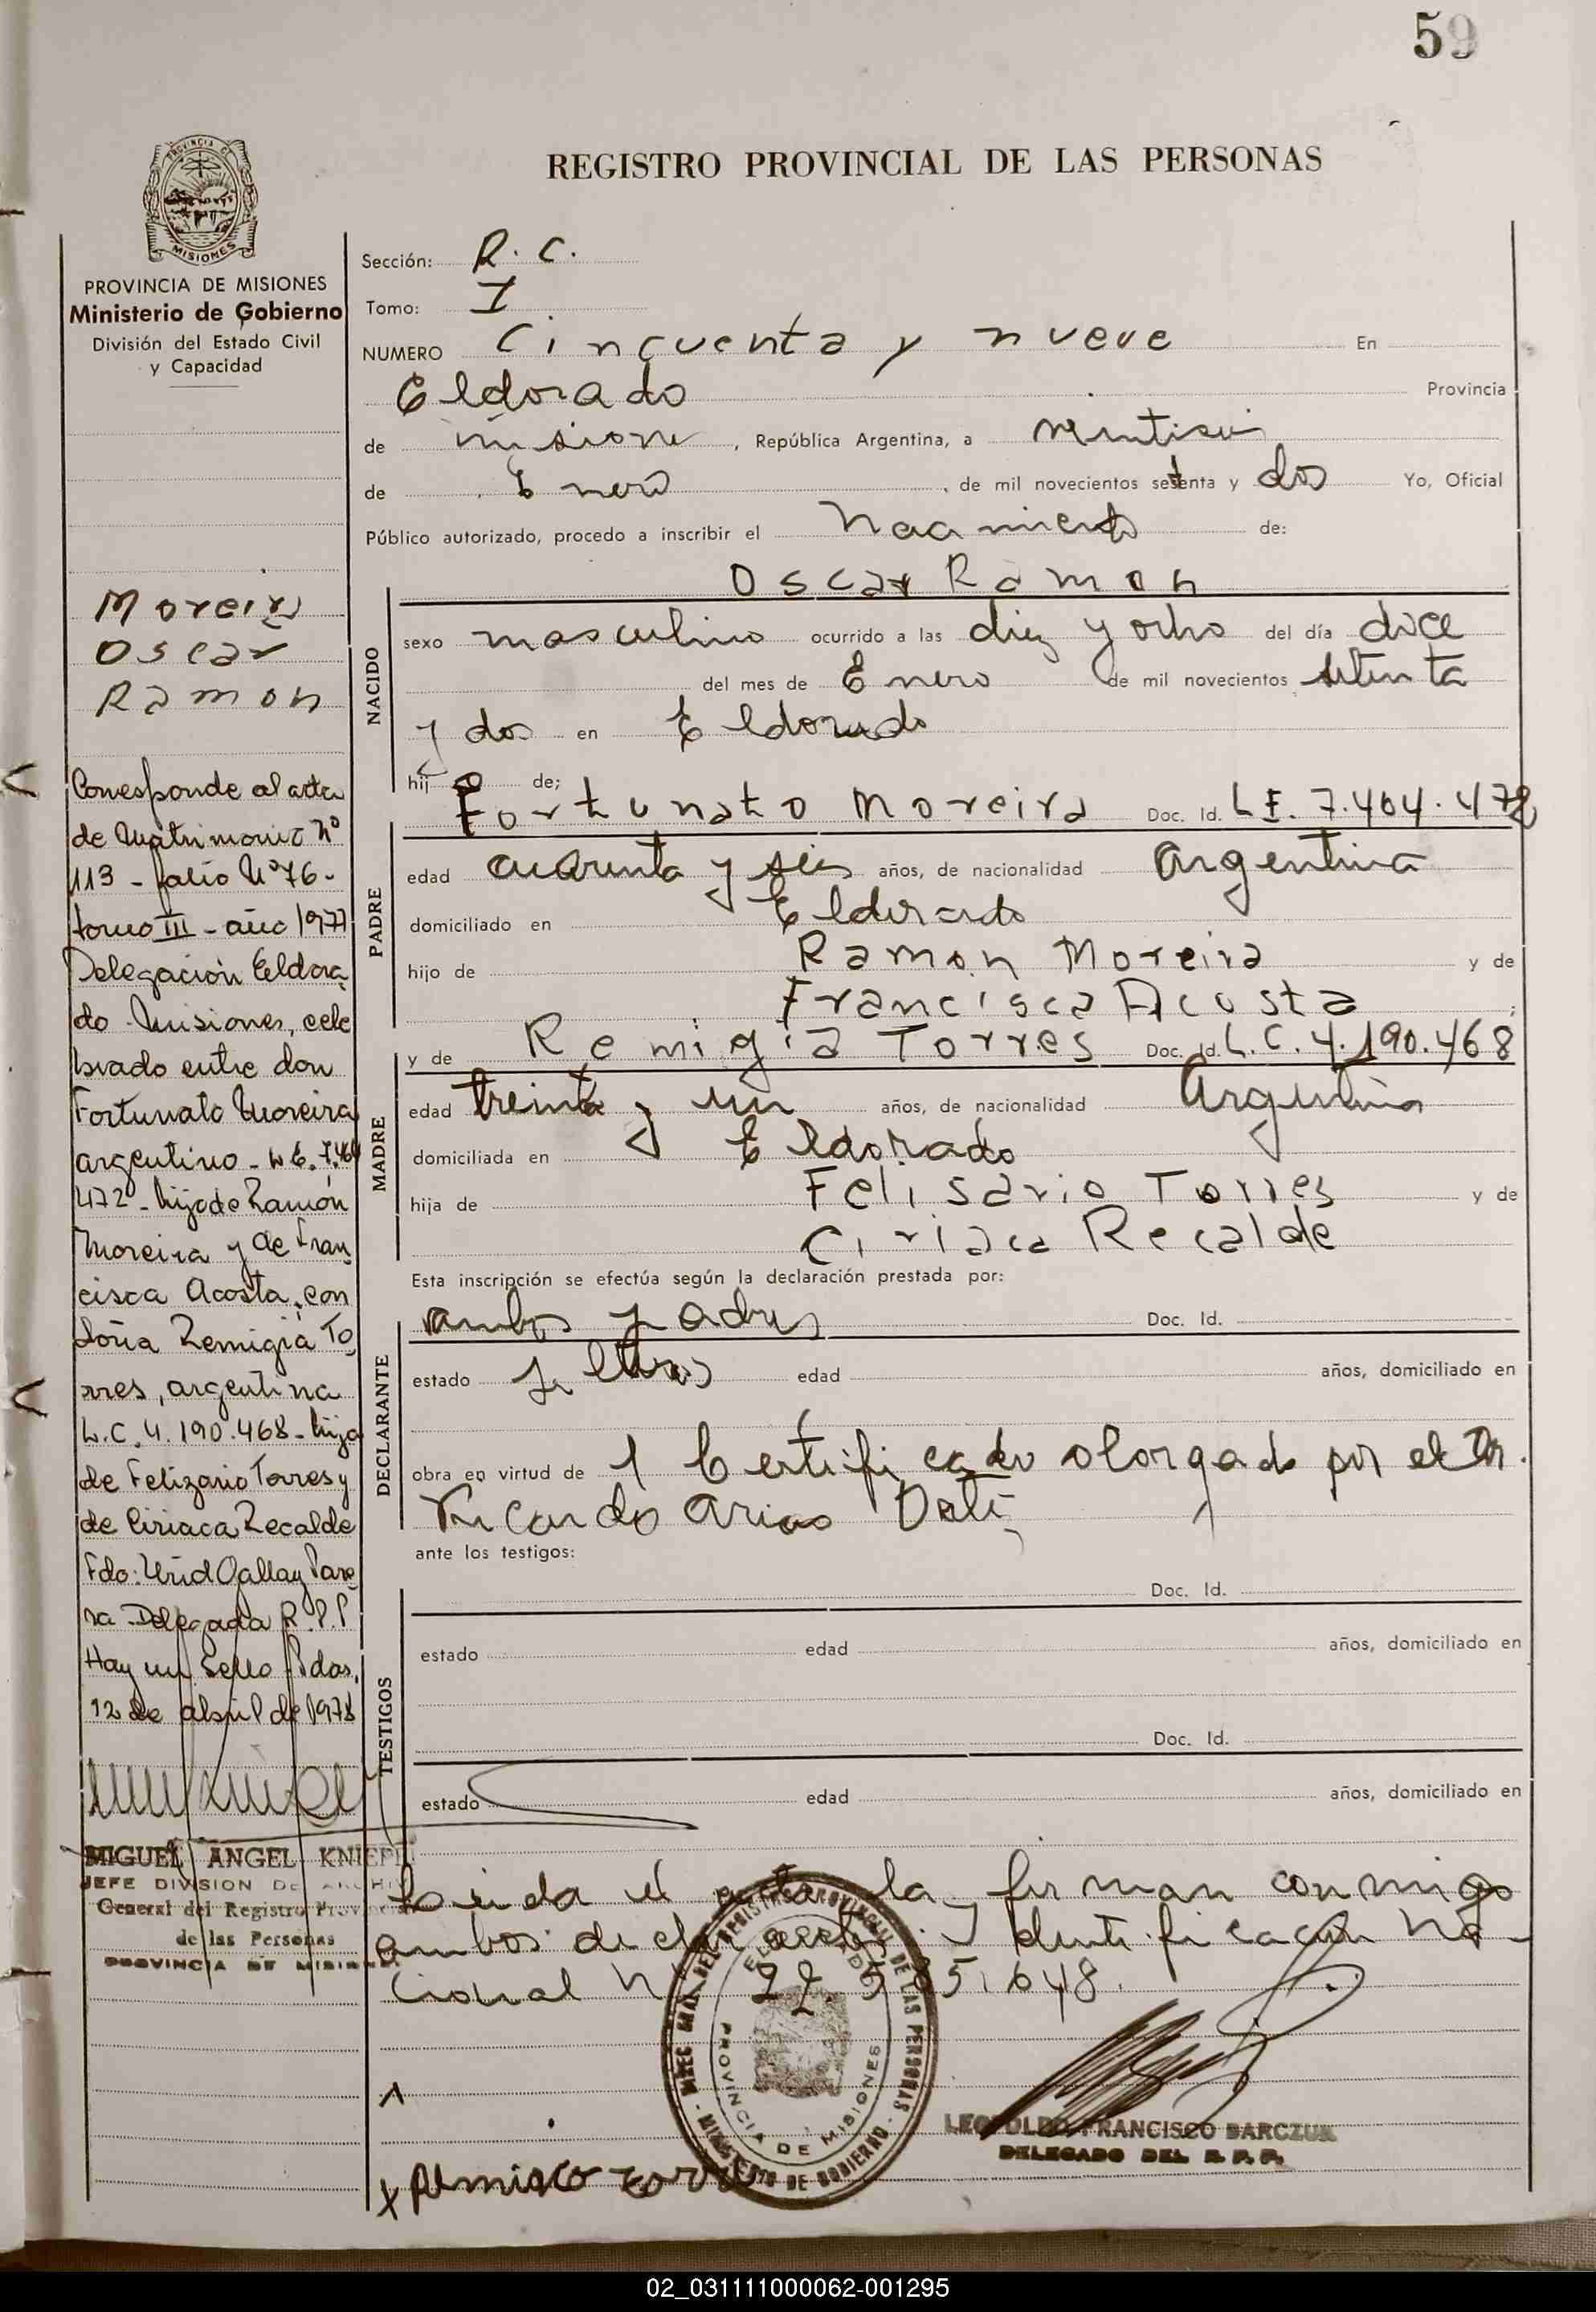 59
REGISTRO PROVINCIAL DE LAS PERSONAS
MISIONES
PROVINCIA DE MISIONES
Ministerio de Gobierno
División del Estado Civil
y Capacidad
Moreira
Oscar
Ramon
Corresponde al acta
de Matrimonio Nº
113 - folio Nº 76 -
tomo III - año 1977
Delegación Eldora
do Misiones, cele
brado entre don
Fortunato Moreira
argentino - L.E. 7.464
472 - hijo de Ramón
Moreira y de Fran
cisca Acosta, con
doña Remigia To
rres, argentina
L.C. 4.190.468 - hija
de Felizario Torres y
de Ciriaca Recalde
Fdo: Pare
ra Delegada R.P.P
Hay un Sello Pdas,
12 de abril de 1978
MIGUEL ANGEL KNIEPP
JEFE DIVISION DE ARCHIV
General del Registro Provincial
de las Personas
PROVINCIA DE MISIONES
Sección: R. C.
Tomo: I
NUMERO Cincuenta y nueve En
Eldorado Provincia
de misione, República Argentina, a veintiseis
de Enero, de mil novecientos setenta y dos Yo, Oficial
Público autorizado, procedo a inscribir el Nacimiento de:
Oscar Ramon
NACIDO
sexo masculino ocurrido a las diez y ocho del día doce
del mes de Enero de mil novecientos setenta
y dos en Eldorado
hijo de;
Fortunato Moreira Doc. Id. L E. 7.464.472
PADRE
edad cuarenta y seis años, de nacionalidad Argentina
domiciliado en Eldorado
hijo de Ramon Moreira y de
Francisca Acosta ;
y de Remigia Torres Doc. Id. L. C. 4.190.468
MADRE
edad treinta y un años, de nacionalidad Argentina
domiciliada en Eldorado
hija de Felisario Torres y de
Ciriaca Recalde
Esta inscripción se efectúa según la declaración prestada por:
ambos padres Doc. Id.
DECLARANTE
estado edad años, domiciliado en
obra en virtud de 1 Certificado otorgado por el Dr.
Ricardo Arias
ante los testigos:
Doc. Id.
TESTIGOS
estado edad años, domiciliado en
Doc. Id.
estado edad años, domiciliado en
Leida el acta la firman conmigo
ambos declarantes. Identificación Na-
cional Nº 22.535.648.
MTEC. GRAL. DEL REGISTRO PROVINCIAL DE LAS PERSONAS
ELDORADO
PROVINCIA DE MISIONES
- MINISTERIO DE GOBIERNO -
LEOPOLDO FRANCISCO BARCZUK
DELEGADO DEL R. P. P.
02_031111000062-001295